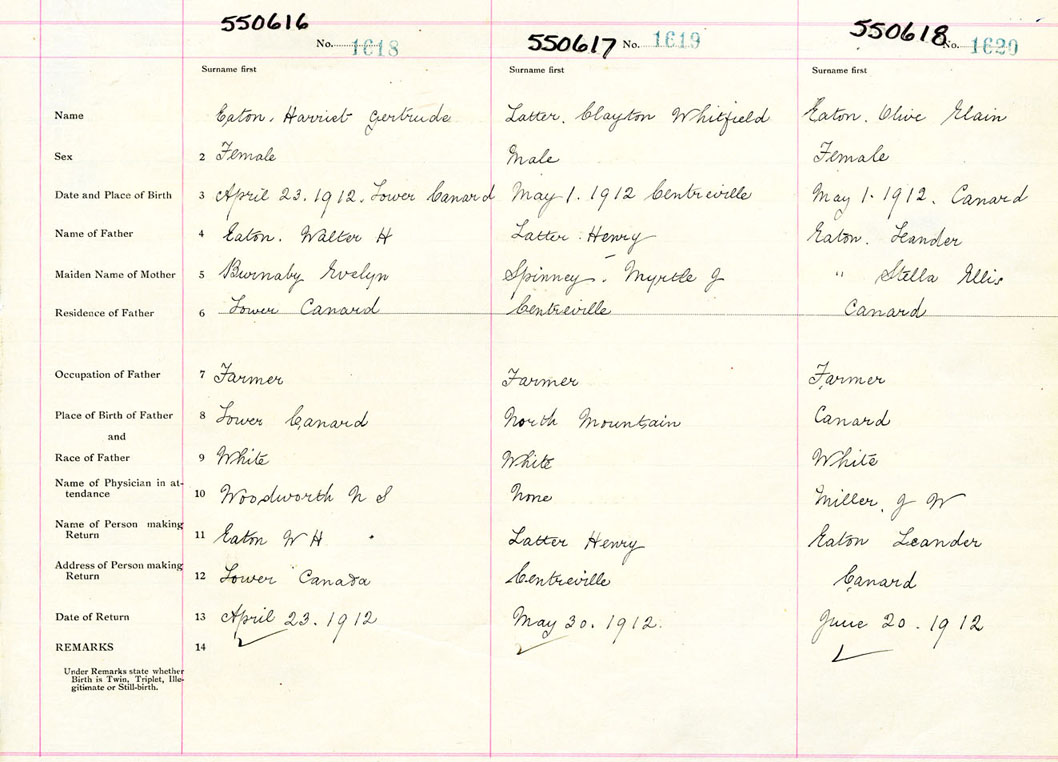 550616 550617 550618
No. 1618 No. 1619 No. 1620
Surname first Surname first Surname first
Name Eaton, Harriet Gertrude Latter, Clayton Whitfield Eaton, Olive Elain
Sex 2 Female Male Female
Date and Place of Birth 3 April 23. 1912. Lower Canard May 1. 1912 Centreville May 1. 1912. Canard
Name of Father 4 Eaton. Walter H Latter. Henry Eaton. Leander
Maiden Name of Mother 5 Burnaby Evelyn Spinney. Myrtle G " Stella Ellis
Residence of Father 6 Lower Canard Centreville Canard
Occupation of Father 7 Farmer Farmer Farmer
Place of Birth of Father 8 Lower Canard North Mountain Canard
and
Race of Father 9 White White White
Name of Physician in at-
tendance 10 Woodworth N S None Miller, J W
Name of Person making
Return 11 Eaton W H Latter Henry Eaton Leander
Address of Person making
Return 12 Lower Canada Centreville Canard
Date of Return 13 April 23. 1912 May 30. 1912. June 20. 1912
REMARKS 14
Under Remarks state whether
Birth is Twin, Triplet, Ille-
gitimate or Still-birth.